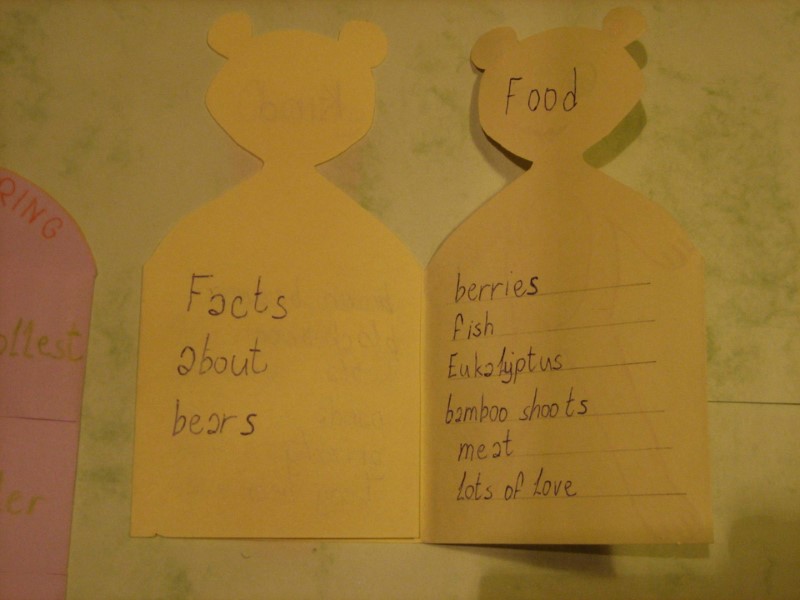 RING
Facts
about
bears
Food
berries
fish
Eukalyptus
bamboo shoots
meat
lots of love